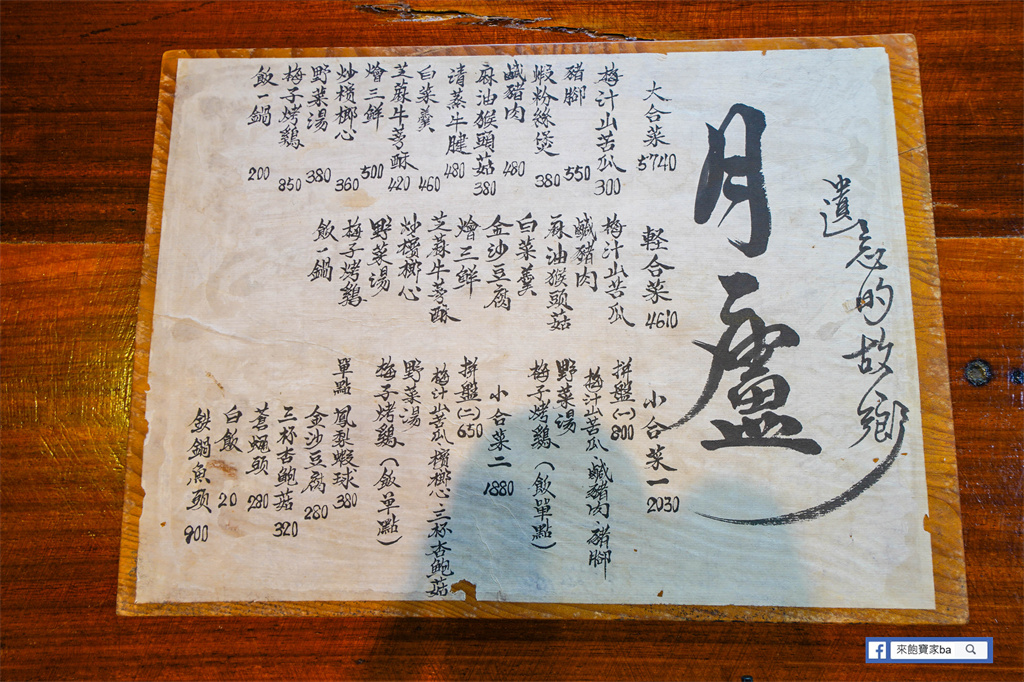 月廬
遺忘的故鄉
大合菜 5740
梅汁山苦瓜 300
豬腳 550
蝦粉絲煲 380
鹹豬肉 480
麻油猴頭菇 380
清蒸牛腱 480
白菜羹 460
芝蔴牛蒡酥 420
燴三鮮 500
炒檳榔心 360
野菜湯 380
梅子烤鷄 850
飯一鍋 200
輕合菜 4610
梅汁山苦瓜
鹹豬肉
麻油猴頭菇
白菜羹
金沙豆腐
燴三鮮
芝蔴牛蒡酥
炒檳榔心
野菜湯
梅子烤鷄
飯一鍋
小合菜一 2030
拼盤(一) 800
梅汁山苦瓜.鹹豬肉.豬腳
野菜湯
梅子烤鷄(飯單點)
小合菜二 1880
拼盤(二) 650
梅汁山苦瓜.檳榔心.三杯杏鮑菇
野菜湯
梅子烤鷄(飯單點)
單點
鳳梨蝦球 380
金沙豆腐 280
三杯杏鮑菇 320
蒼蠅頭 280
白飯 20
鐵鍋魚頭 900
來飽寶家ba